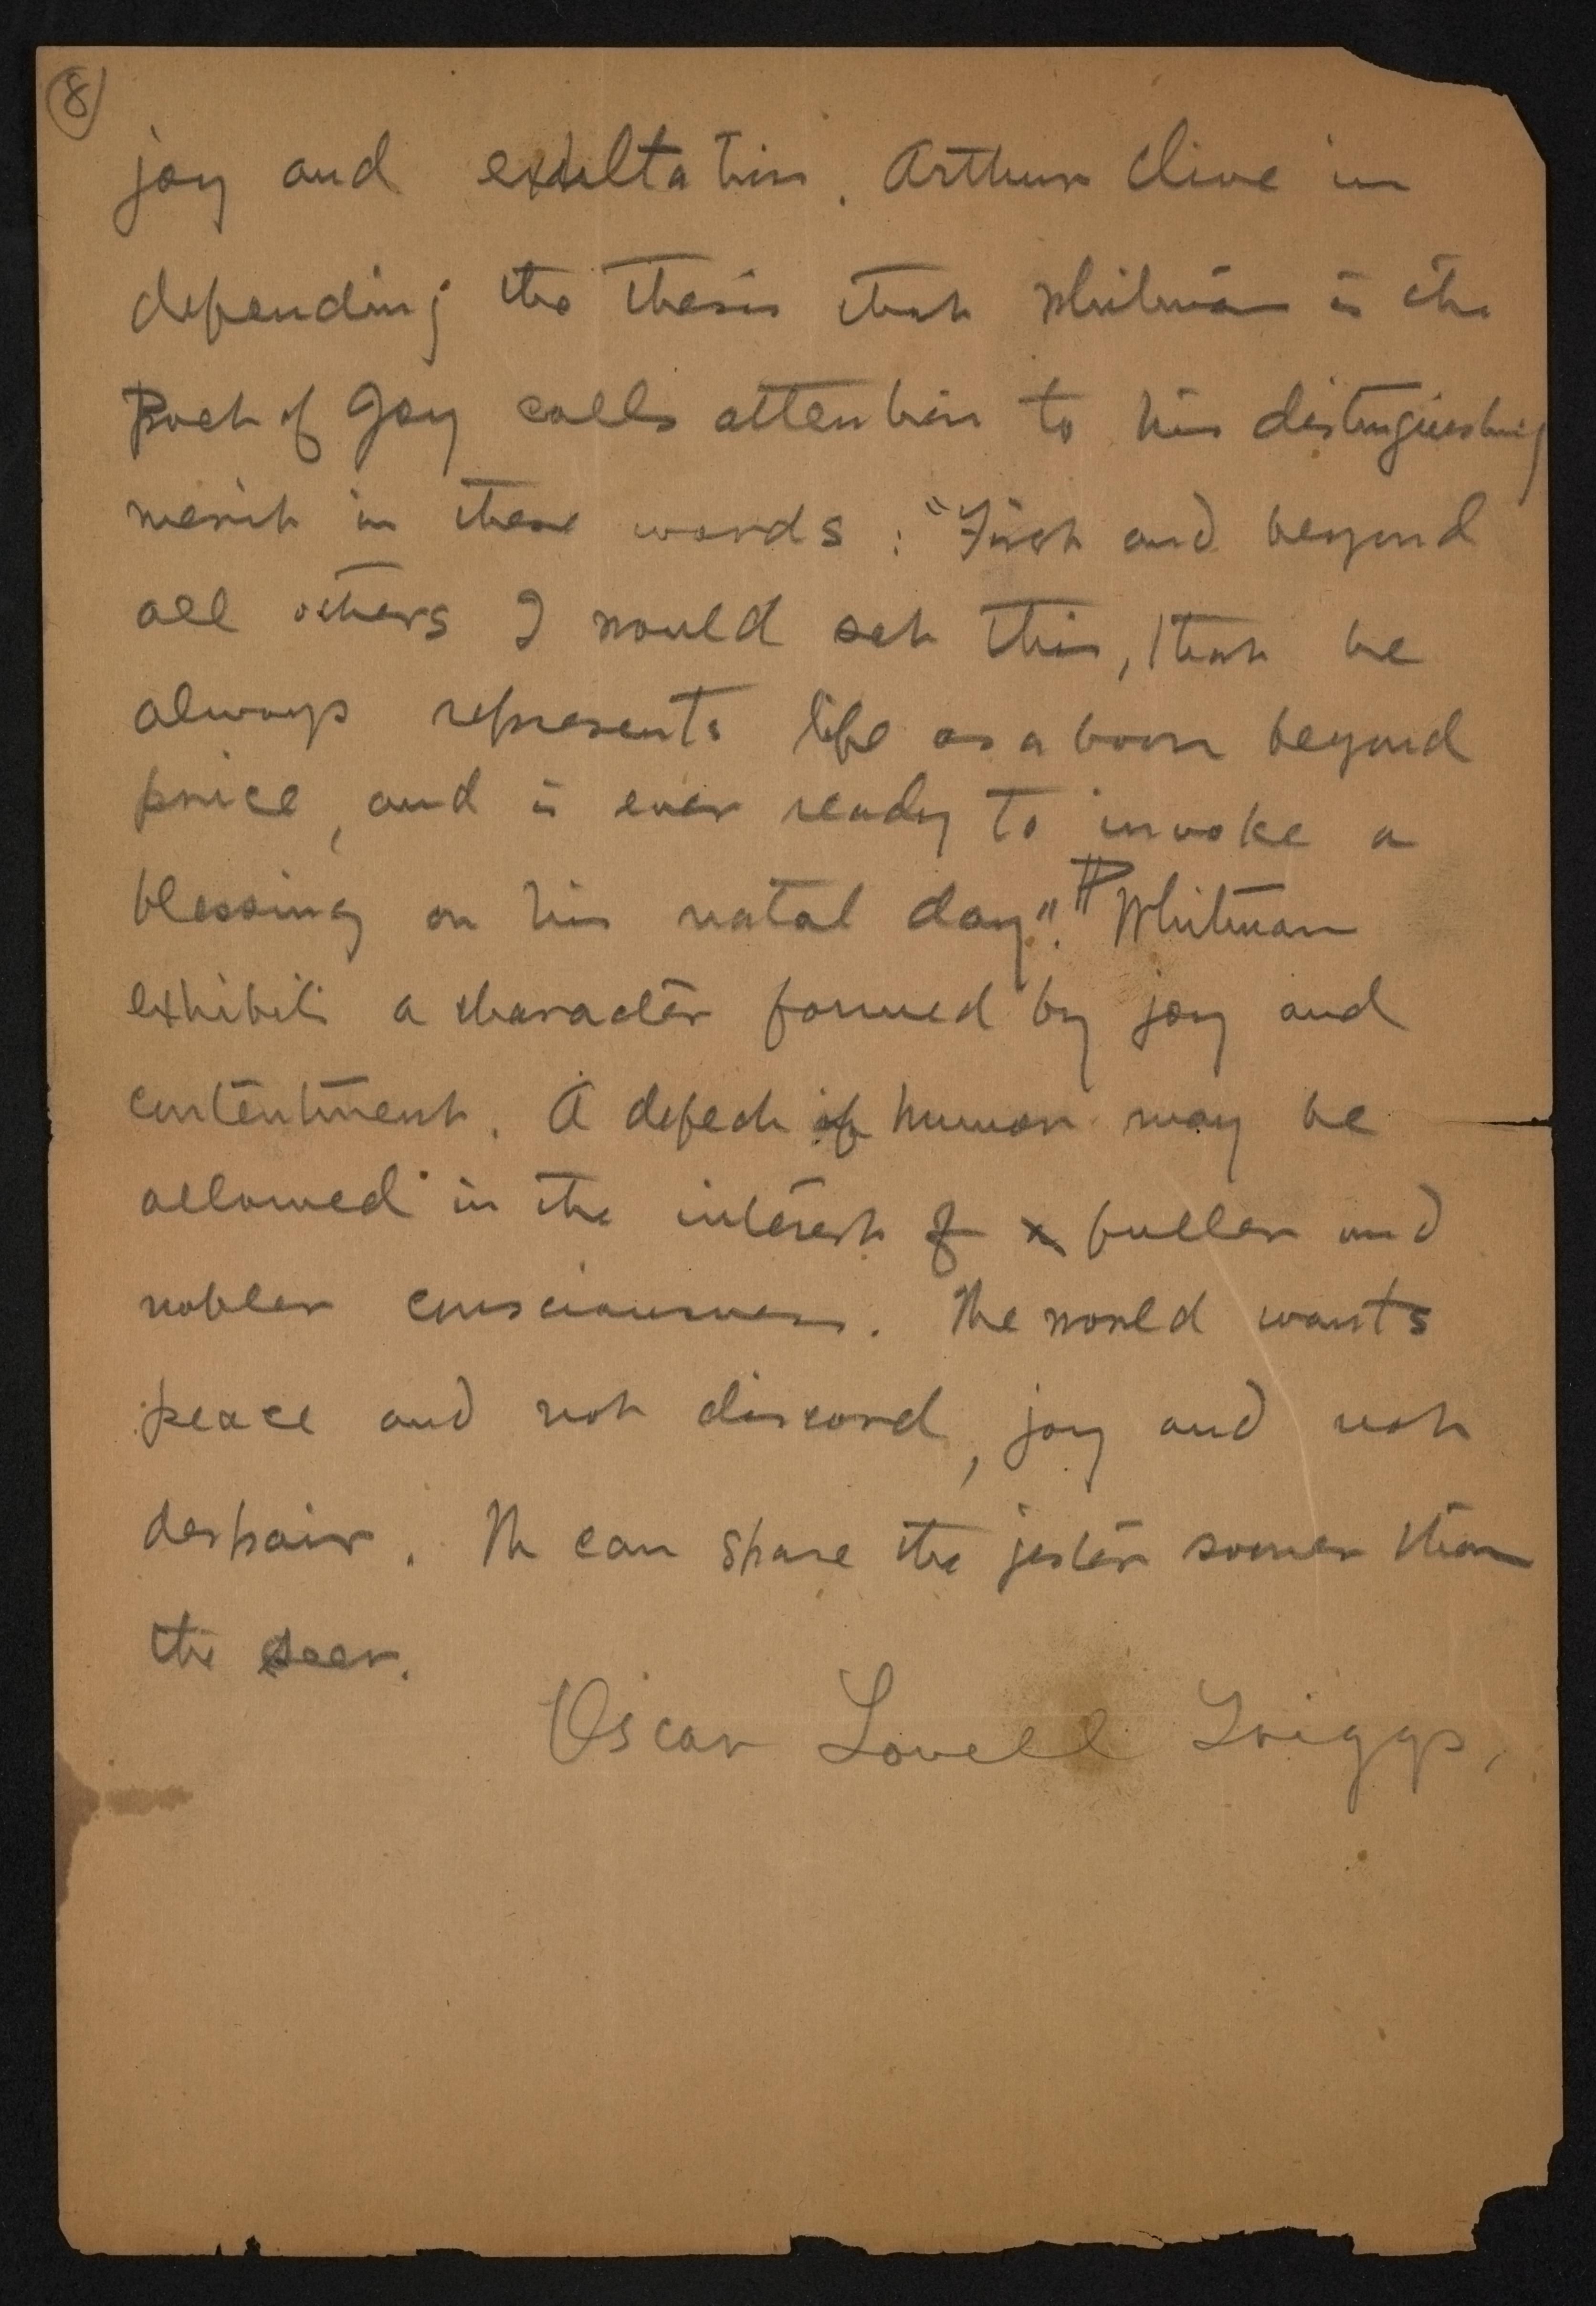 8
joy and exultation. Arthur Clive in
defending the thesis that Whitman is the
Poet of Joy calls attention to his distinguishing
merit in these words : "First and beyond
all others I would set this, that he
always represents life as a boon beyond
price, and is ever ready to invoke a
blessing on his natal day". ¶ Whitman
exhibits a character formed by joy and
contentment. A defect of humor may be
allowed in the interest of a fuller and
nobler consciousness. The world wants
peace and not discord, joy and not
despair. We can spare the jester sooner than
the seer.
Oscar Lovell Triggs.